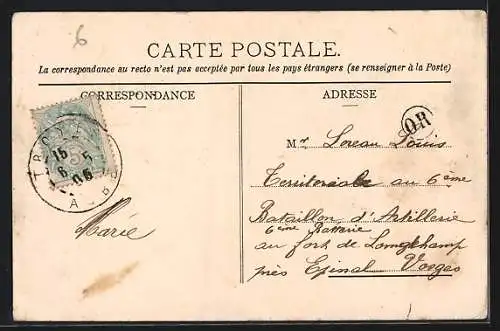 6
CARTE POSTALE.
La correspondance au recto n'est pas acceptée par tous les pays étrangers (se renseigner à la Poste)
CORRESPONDANCE
ADRESSE
OR
Mr Loreau Louis
Territoriale au 6ème
Bataillon d'Artillerie
6ème Batterie
au fort de Longchamp
près Epinal Vosges
15
6 5
06
AUBE
Marie